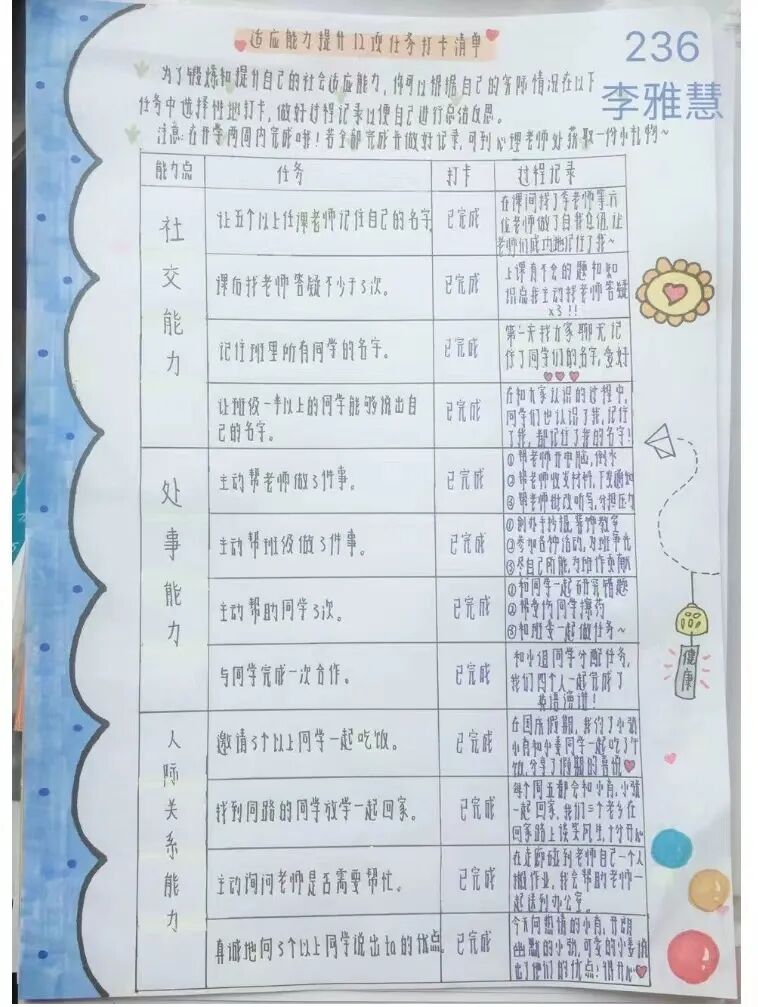 适应能力提升12项任务打卡清单
236
李雅慧
为了锻炼和提升自己的社会适应能力，你可以根据自己的实际情况在以下
任务中选择性地打卡，做好过程记录以便自己进行总结反思。
注意：在开学两周内完成哦！若全部完成并做好记录，可到心理老师处获取一份小礼物~
能力点 任务 打卡 过程记录
社交能力
让五个以上任课老师记住自己的名字 已完成
在课间找了李老师等六
位老师做了自我介绍，让
老师们成功地记住了我~
课后找老师答疑不少于3次。 已完成
上课有不会的题和知
识点我主动找老师答疑
x3!!
记住班里所有同学的名字。 已完成
第一天找大家聊天记
住了同学们的名字，爱好
让班级一半以上的同学能够说出自
己的名字。
已完成
在和大家认识的过程中，
同学们也认识了我，记住
了我，都记住了我的名字！
处事能力
主动帮老师做3件事。 已完成
①帮老师开电脑，倒水
②帮老师收发材料，下发通知
③帮老师批改听写，分担压力
主动帮班级做3件事。 已完成
①创办手抄报，装饰教室
②参加各种活动，为班争光
③尽自己所能，为班作贡献
主动帮助同学3次。 已完成
①和同学一起研究错题
②帮受伤同学擦药
③和班委一起做任务~
与同学完成一次合作。 已完成
和小组同学分配任务，
我们四个人一起完成了
英语演讲！
健康
人际关系能力
邀请3个以上同学一起吃饭。 已完成
在国庆假期，我约了小劲
小肖和小姜同学一起吃了午
饭，分享了假期的喜悦
找到同路的同学放学一起回家。 已完成
每个周五都会和小肖，小张
一起回家，我们三个老乡在
回家路上谈笑风生，十分开心
主动询问老师是否需要帮忙。 已完成
在走廊碰到老师自己一个人
搬作业，我会帮助老师一
起送到办公室。
真诚地向3个以上同学说出ta的优点。 已完成
今天向热情的小肖，开朗
幽默的小劲，可爱的小姜说
出了他们的优点！很开心